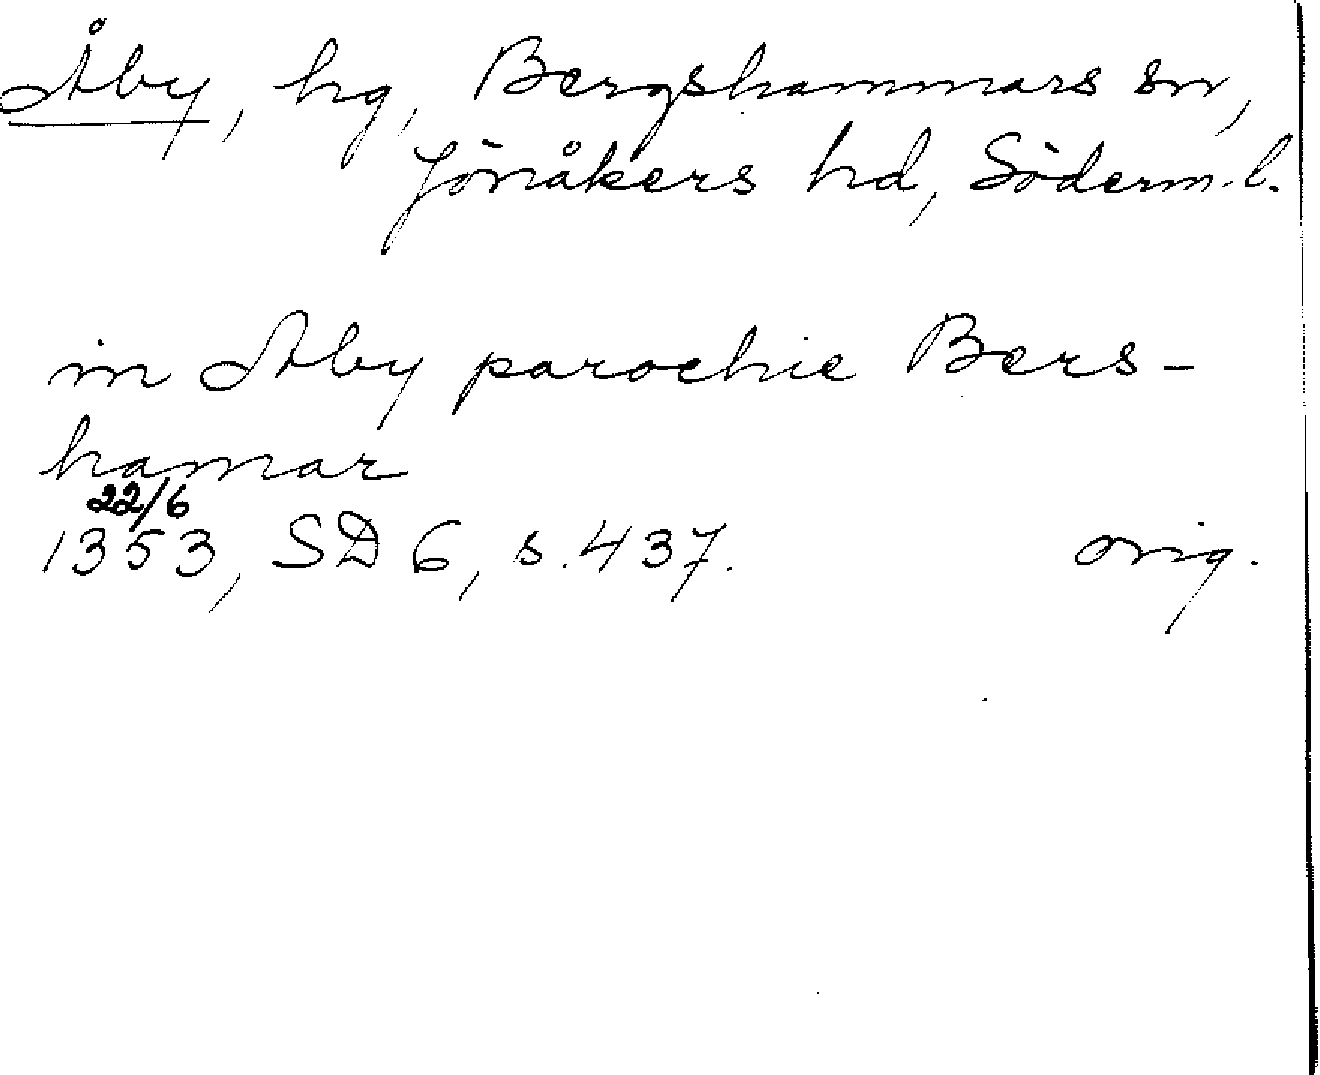 Åby, hg, Bergshammars sn,
Jönåkers hd, Söderm. l.
in Aby parochie Bers-
hamar
22/6
1353, SD 6, s. 437. orig.